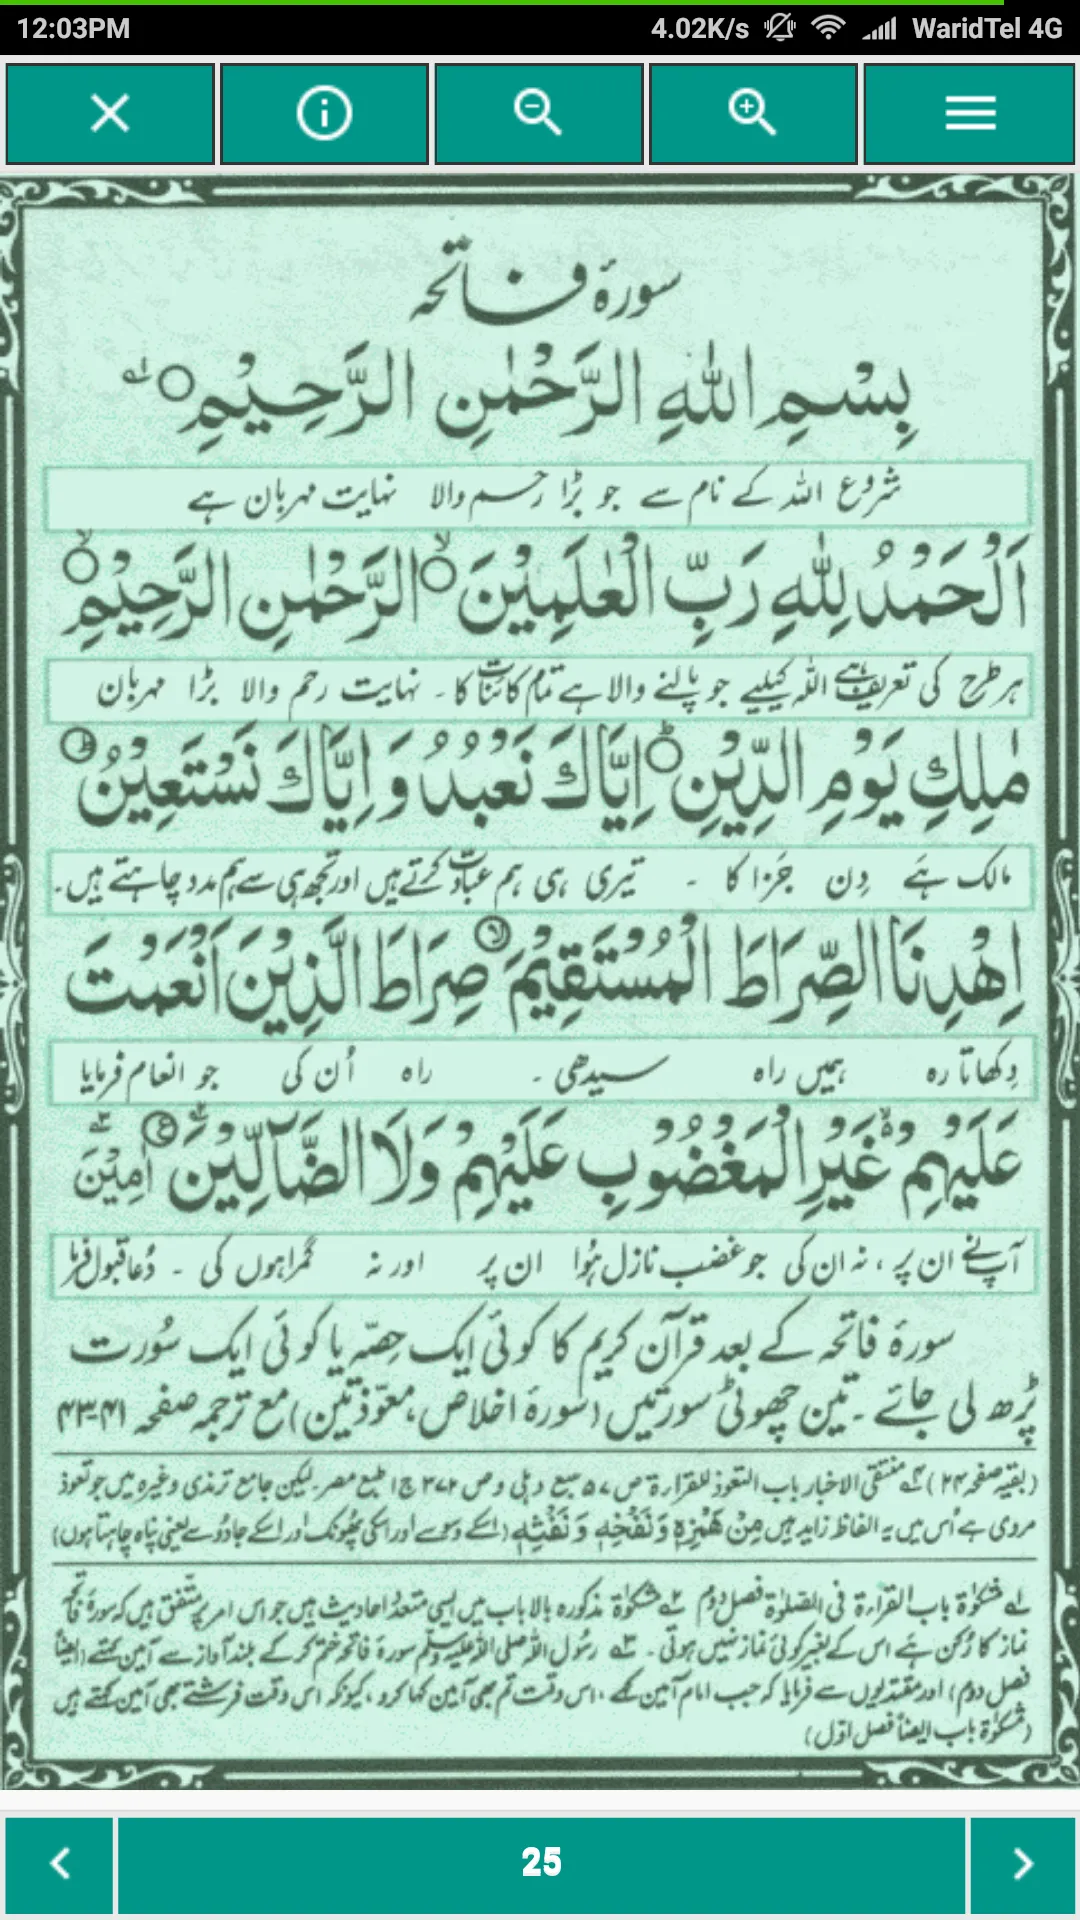 12:03PM 4.02K/s WaridTel 4G
سورۂ فاتحہ
بِسْمِ اللّٰهِ الرَّحْمٰنِ الرَّحِيْمِ ○ ۱ے
شروع اللہ کے نام سے جو بڑا رحم والا نہایت مہربان ہے
اَلْحَمْدُ لِلّٰهِ رَبِّ الْعٰلَمِيْنَ ○ۙ الرَّحْمٰنِ الرَّحِيْمِ ○ۙ
ہر طرح کی تعریف ہے اللہ کیلیے جو پالنے والا ہے تمام کائنات کا ۔ نہایت رحم والا بڑا مہربان
مٰلِكِ يَوْمِ الدِّيْنِ ○ؕ اِيَّاكَ نَعْبُدُ وَ اِيَّاكَ نَسْتَعِيْنُ ○ؕ
مالک ہَے دِن جَزا کا ۔ تیری ہی ہم عبادت کرتے ہیں اور تجھ ہی سے ہم مدد چاہتے ہیں۔
اِهْدِنَا الصِّرَاطَ الْمُسْتَقِيْمَ ○ۙ صِرَاطَ الَّذِيْنَ اَنْعَمْتَ
دِکھاتا رہ ہمیں راہ سیدھی ۔ راہ اُن کی جو انعام فرمایا
عَلَيْهِمْ ۙ۬ غَيْرِ الْمَغْضُوْبِ عَلَيْهِمْ وَلَا الضَّآلِّيْنَ ۳ے اٰمِيْنَ
آپ نے ان پر ، نہ ان کی جو غضب نازل ہُوا ان پر اور نہ گمراہوں کی ۔ دُعا قبول فرما
سورۂ فاتحہ کے بعد قرآن کریم کا کوئی ایک حِصّہ یا کوئی ایک سُورت
پڑھ لی جائے ۔ تین چھوٹی سورتیں (سورۂ اخلاص، معوّذتین) مع ترجمہ صفحہ ۴۱-۴۳
(بقیہ صفحہ ۲۴) ۴ے منتقی الاخبار باب التعوذ للقراءة ص ۵۷ طبع دہلی و ص ۳۷۲ ج ۱ طبع مصر۔ لیکن جامع ترمذی وغیرہ میں جو تعوذ
مروی ہے اُس میں یہ الفاظ زاید ہیں مِنْ هَمْزِهٖ وَنَفْخِهٖ وَنَفْثِهٖ (اسکے وسوسے اور اسکی پھونک اور اسکے جادو سے یعنی پناہ چاہتا ہوں)
۱ے مشکوٰة باب القراءة فی الصلوٰة فصل دوم ۲ے مشکوٰة مذکورہ بالا باب میں ایسی متعدد احادیث ہیں جو اس امر پر متفق ہیں کہ سورۂ فاتحہ
نماز کا رُکن ہَے اس کے بغیر کوئی نماز نہیں ہوتی ۔ ۳ے رسُول اللہ صلی اللہ علیہ وسلم سورۂ فاتحہ ختم کر کے بلند آواز سے آمین کہتے (ایضاً
فصل دوم) اور مقتدیوں سے فرمایا کہ جب امام آمین کہے ، اس وقت تم بھی آمین کہا کرو ، کیونکہ اس وقت فرشتے بھی آمین کہتے ہیں
(مشکوٰة باب ایضاً فصل اوّل)
25